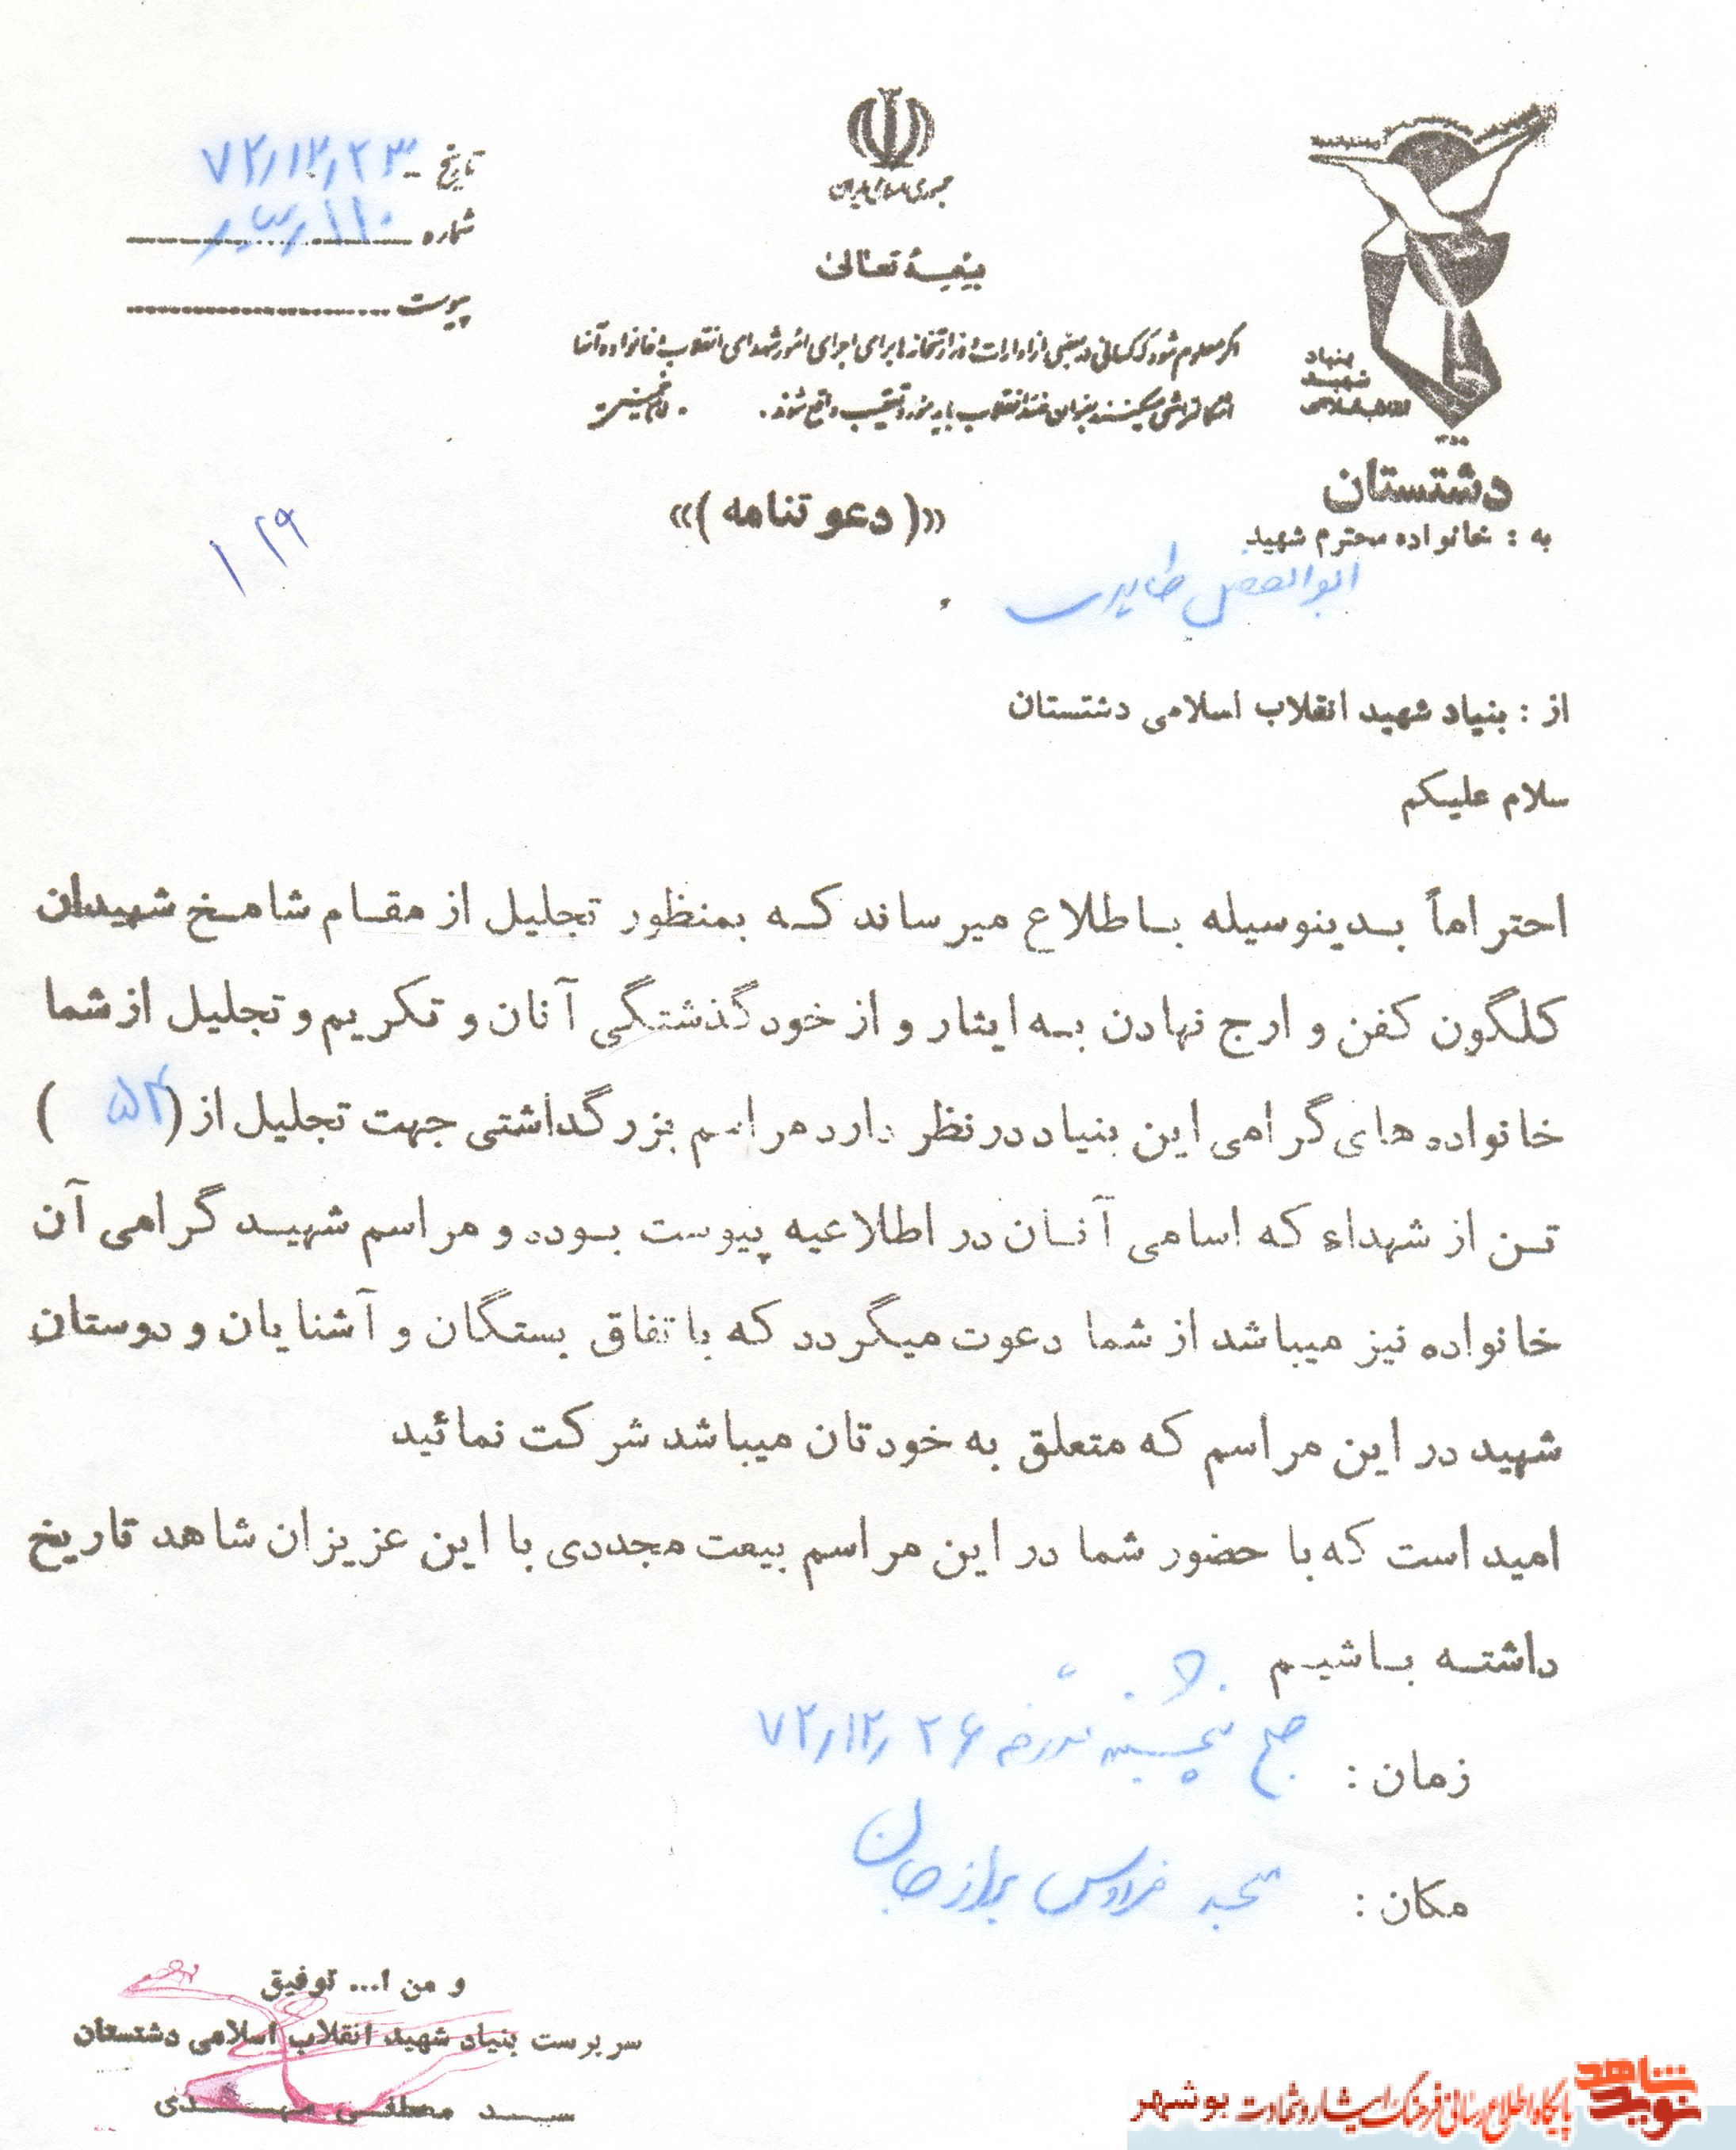 جمهوری اسلامی ایران
بسمه تعالی
تاریخ ۷۲/۱۲/۲۳
شماره ۱۱۰
پیوست
اگر معلوم شود که کسانی در بعضی از ادارات و وزارتخانه‌ها برای اجرای امور شهدای انقلاب و خانواده آنها
اشکالتراشی میکنند بعنوان ضد انقلاب باید مورد تعقیب واقع شوند. امام خمینی
بنیاد
شهید
انقلاب اسلامی
دشتستان
«( دعوتنامه )»
۱۲۹
به : خانواده محترم شهید
ابوالفضل
از : بنیاد شهید انقلاب اسلامی دشتستان
سلام علیکم
احتراماً بدینوسیله باطلاع میرساند که بمنظور تجلیل از مقام شامخ شهیدان
کلگون کفن و ارج نهادن به ایثار و از خودگذشتگی آنان و تکریم و تجلیل از شما
خانواده های گرامی این بنیاد در نظر دارد مراسم بزرگداشتی جهت تجلیل از (۵۴)
تن از شهداء که اسامی آنان در اطلاعیه پیوست بوده و مراسم شهید گرامی آن
خانواده نیز میباشد از شما دعوت میگردد که باتفاق بستگان و آشنایان و دوستان
شهید در این مراسم که متعلق به خودتان میباشد شرکت نمائید
امید است که با حضور شما در این مراسم بیعت مجددی با این عزیزان شاهد تاریخ
داشته باشیم
زمان : صبح پنجشنبه مورخه ۷۲/۱۲/۲۶
مکان : مسجد فردوس برازجان
و من ا... توفیق
سرپرست بنیاد شهید انقلاب اسلامی دشتستان
سید مصطفی مهتدی
نوید شاهد
پایگاه اطلاع رسانی فرهنگ ایثار و شهادت بوشهر